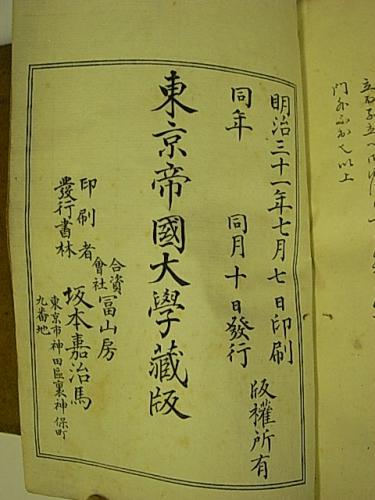 明治三十一年七月七日印刷
同年 同月十日發行
版權所有
東京帝國大學藏版
印刷者
發行書林
合資
會社
冨山房
坂本嘉治馬
東京市神田區裏神保町
九番地
門外不出也以上